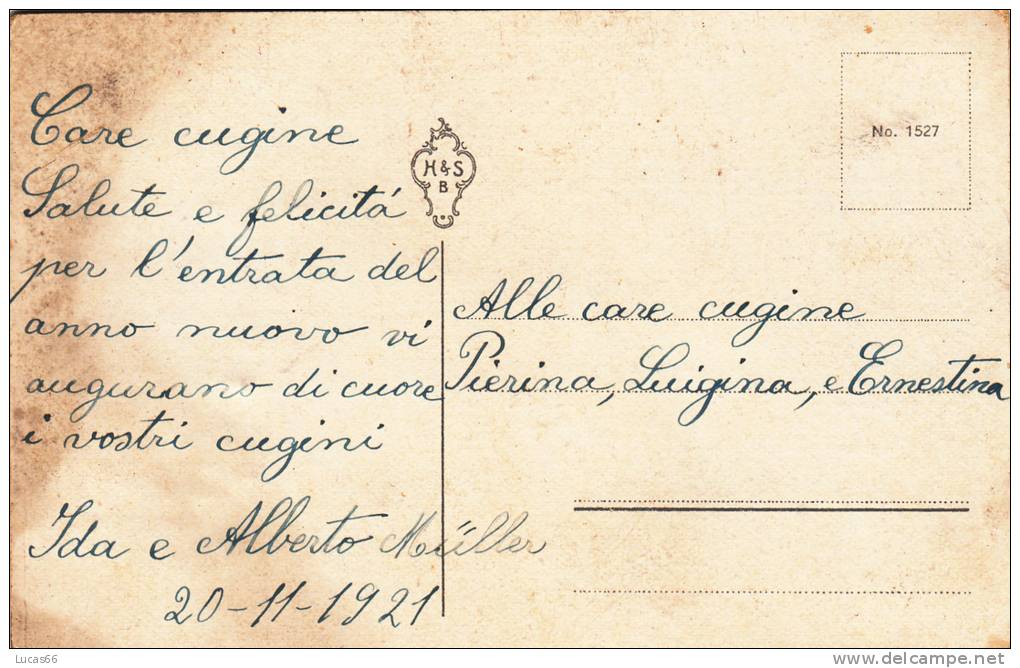 Care cugine
Salute e felicitá
per l'entrata del
anno nuovo vi
augurano di cuore
i vostri cugini
Ida e Alberto Müller
20-11-1921
H&S
B
No. 1527
Alle care cugine
Pierina, Luigina, e Ernestina
Lucas66
http://www.delcampe.net